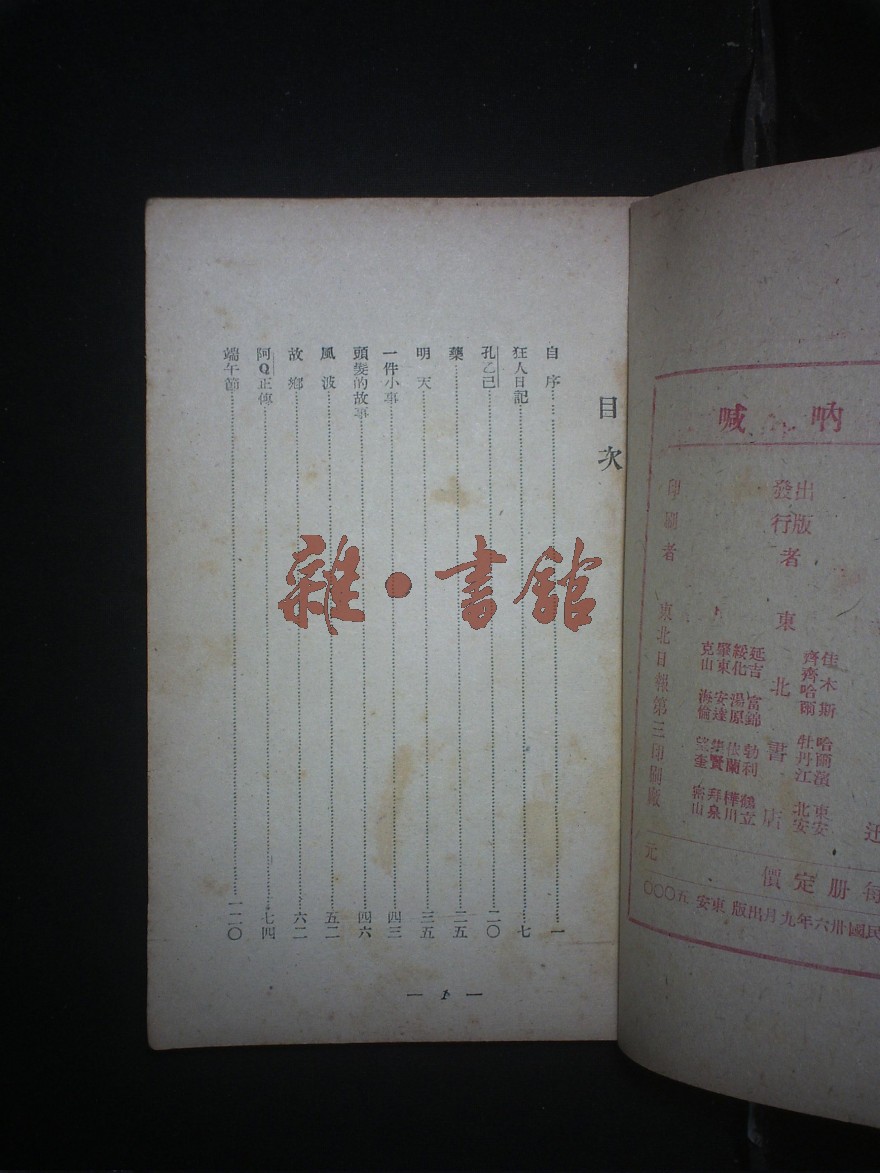 吶喊
出版
發行者
印刷者
東北書店
佳木斯 哈爾濱 東安
齊齊哈爾 牡丹江 北安
延吉 富錦 勃利 鶴立
綏化 湯原 依蘭 樺川
肇東 安達 集賢 拜泉
克山 海倫 望奎 密山
東北日報第三印刷廠
每册定價
元
民國卅六年九月出版 東安 五〇〇〇
目次
自序 一
狂人日記 七
孔乙己 二〇
藥 二五
明天 三五
一件小事 四三
頭髮的故事 四六
風波 五二
故鄉 六二
阿Q正傳 七四
端午節 一二〇
— 1 —
雜·書館